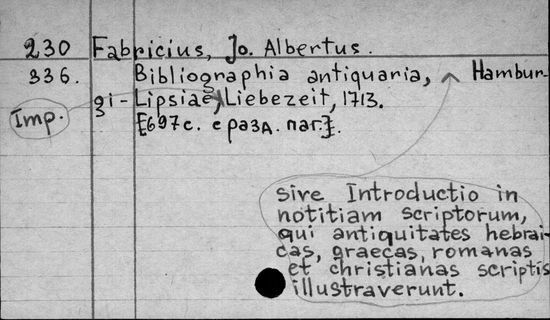 230 Fabricius, Jo. Albertus.
336. Bibliographia antiquaria, ^ Hambur-
gi - Lipsiae, Liebezeit, 1713.
Imp.
[697 c. с разд. паг.].
sive Introductio in
notitiam scriptorum,
qui antiquitates hebrai-
cas, graecas, romanas
et christianas scriptis
illustraverunt.